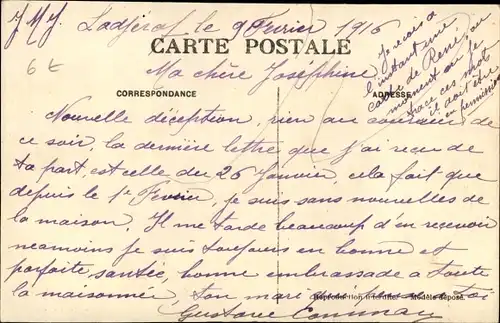 J M J Ladjéraf le 9 Février 1916
CARTE POSTALE
6 t
Ma chère Joséphine
CORRESPONDANCE
ADRESSE
Je reçois à
l'instant une
carte de René, au
moment où je
trace ces mot
il doit être
en permission
Nouvelle déception, rien au courrier de
ce soir, la dernière lettre que j'ai reçu de
ta part, est celle du 26 Janvier, cela fait que
depuis le 1er Fevrier, je suis sans nouvelles de
la maison. Il me tarde beaucoup d'en recevoir
neamoins je suis toujours en bonne et
parfaite santée, bonne embrassade a toute
la maisonnée, ton mari qui pense a toi
Reproduction interdite Modèle déposé.
Gustave